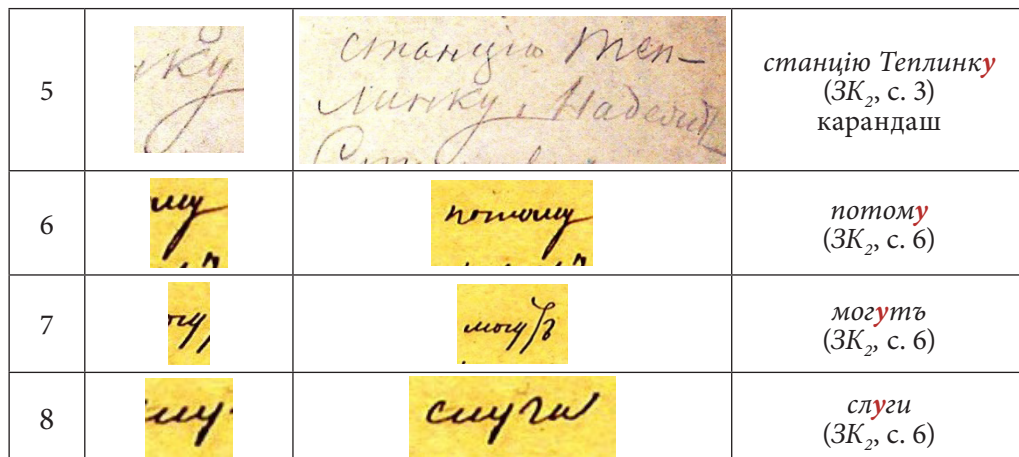 5
ку
станцію Теп-
линку, Надеждѣ
станцію Теплинку
(ЗК₂, с. 3)
карандаш
6
му
потому
потому
(ЗК₂, с. 6)
7
огу
могутъ
могутъ
(ЗК₂, с. 6)
8
лу
слуги
слуги
(ЗК₂, с. 6)